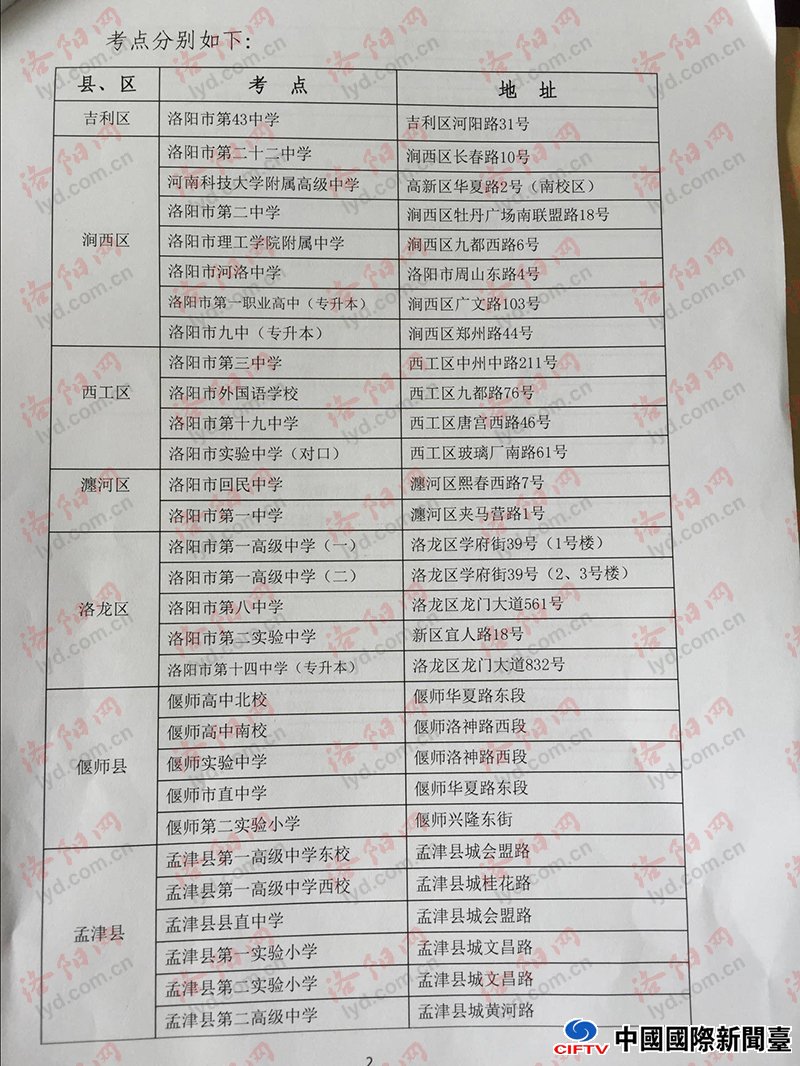 考点分别如下:
县、区 考 点 地 址
吉利区 洛阳市第43中学 吉利区河阳路31号
涧西区 洛阳市第二十二中学 涧西区长春路10号
河南科技大学附属高级中学 高新区华夏路2号（南校区）
洛阳市第二中学 涧西区牡丹广场南联盟路18号
洛阳市理工学院附属中学 涧西区九都西路6号
洛阳市河洛中学 洛阳市周山东路4号
洛阳市第一职业高中（专升本） 涧西区广文路103号
洛阳市九中（专升本） 涧西区郑州路44号
西工区 洛阳市第三中学 西工区中州中路211号
洛阳市外国语学校 西工区九都路76号
洛阳市第十九中学 西工区唐宫西路46号
洛阳市实验中学（对口） 西工区玻璃厂南路61号
瀍河区 洛阳市回民中学 瀍河区熙春西路7号
洛阳市第一中学 瀍河区夹马营路1号
洛龙区 洛阳市第一高级中学（一） 洛龙区学府街39号（1号楼）
洛阳市第一高级中学（二） 洛龙区学府街39号（2、3号楼）
洛阳市第八中学 洛龙区龙门大道561号
洛阳市第二实验中学 新区宜人路18号
洛阳市第十四中学（专升本） 洛龙区龙门大道832号
偃师县 偃师高中北校 偃师华夏路东段
偃师高中南校 偃师洛神路西段
偃师实验中学 偃师洛神路西段
偃师市直中学 偃师华夏路东段
偃师第二实验小学 偃师兴隆东街
孟津县 孟津县第一高级中学东校 孟津县城会盟路
孟津县第一高级中学西校 孟津县城桂花路
孟津县县直中学 孟津县城会盟路
孟津县第一实验小学 孟津县城文昌路
孟津县第二实验小学 孟津县城文昌路
孟津县第二高级中学 孟津县城黄河路
2
洛阳网
lyd.com.cn
CIFTV 中國國際新聞臺